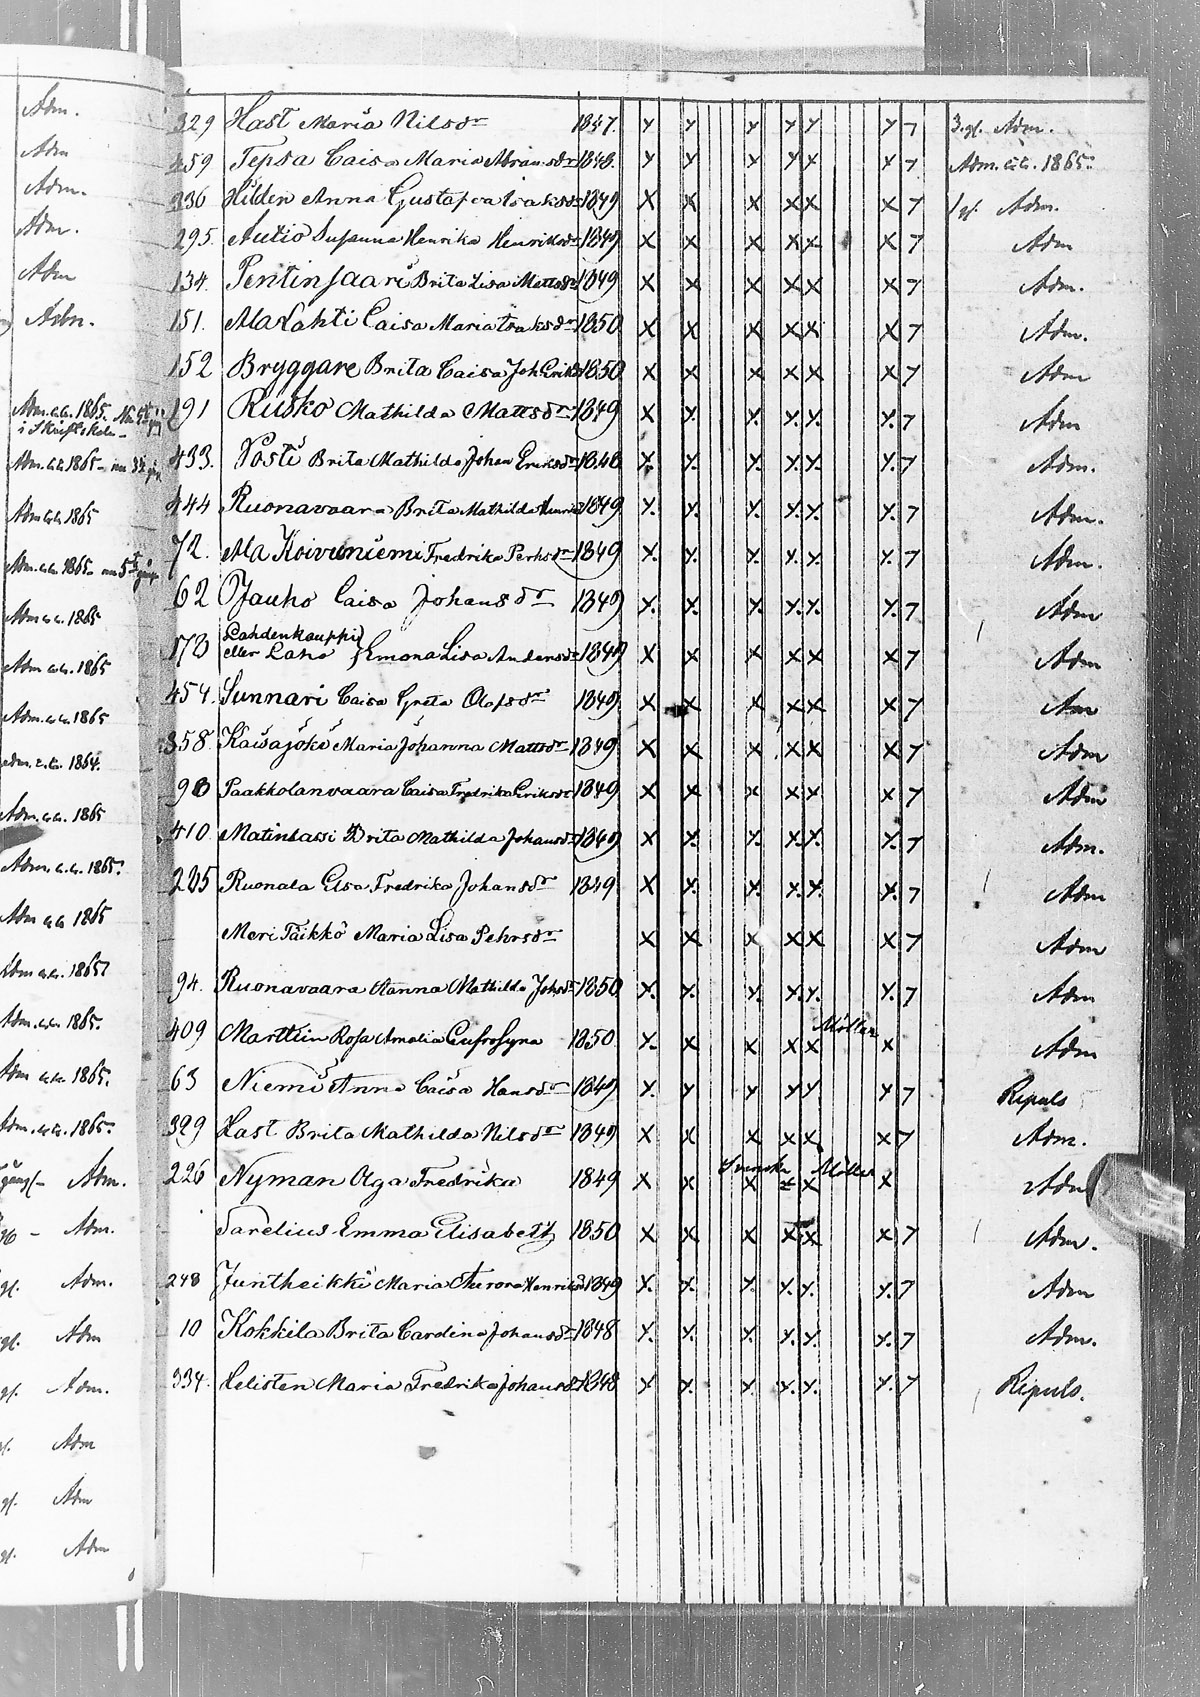 Adm.
Adm
Adm.
Adm.
Adm
Adm.
Adm. 1865.
i Skriftskola
Adm. 1865
Adm 1865
Adm. 1865
Adm 1865
Adm 1865
Adm. 1865
adm. 1864.
Adm. 1865
Adm. 1865.
Adm 1865
Adm 1865
Adm. 1865.
Adm 1865.
Adm. 1865.
gång Adm.
Adm.
gl. Adm.
gl. Adm
gl. Adm.
gl. Adm
gl. Adm
gl. Adm
329 Hast Maria Nilsdr 1847. x x x x x x 7 3. gl. Adm.
459 Tepsa Caisa Maria Abramsdr 1848. x x x x x x 7 Adm. 1865.
336 Hilden Anna Gustafva Isaksdr 1849 x x x x x x 7 1 gl. Adm.
295. Autio Susanna Henrika Henriksdr 1849 x x x x x x 7 Adm
134. Pentinsaari Brita Lisa Mattsdr 1849 x x x x x x 7 Adm.
151. Alalahti Caisa Maria Isaksdr 1850 x x x x x x 7 Adm.
152 Bryggare Brita Caisa Joh Eriksd 1850 x x x x x x 7 Adm
191 Rusko Mathilda Mattsdr 1849 x x x x x x 7 Adm
433. Posti Brita Mathilda Johan Eriksdr 1848 x x x x x x 7 Adm.
444 Ruonavaara Brita Mathilda Henriksd 1849 x x x x x x 7 Adm.
72. Ala Koivuniemi Fredrika Pehrsdr 1849 x x x x x x 7 Adm.
62 Jauho Caisa Johansdr 1849 x x x x x x 7 Adm
173 Lahdenkauppi
eller Laho Emona Lisa Andersdr 1849 x x x x x x 7 Adm
454 Sunnari Caisa Greta Olofsdr 1849 x x x x x x 7 Am
358. Kaisajoki Maria Johanna Mattsdr 1849 x x x x x x 7 Adm
93 Paakkolanvaara Caisa Fredrika Eriksdr 1849 x x x x x x 7 Adm
410. Matinlassi Brita Mathilda Johansdr 1849 x x x x x x 7 Adm.
285 Ruonala Elsa Fredrika Johansdr 1849 x x x x x x 7 Adm
Meri Täikkö Maria Lisa Pehrsdr x x x x x x 7 Adm
94. Ruonavaara Hanna Mathilda Johsdr 1850 x x x x x x 7 Adm
Möller
409 Marttiin Rosa Amalia Eufrosyna 1850 x x x x x x Adm
63 Niemi Anna Caisa Hansdr 1849 x x x x x x 7 Repuls
329 Hast Brita Mathilda Nilsdr 1849 x x x x x x 7 Adm.
Svenska Möller
226 Nyman Olga Fredrika 1849 x x x x x x Adm
Sarelius Emma Elisabeth 1850 x x x x x x 7 Adm.
248 Juntheikki Maria Aurora Henriksd 1849 x x x x x x 7 Adm
10 Kokkila Brita Cardina Johansdr 1848 x x x x x x 7 Adm.
334. Helisten Maria Fredrika Johansdr 1848 x x x x x x 7 Repuls.